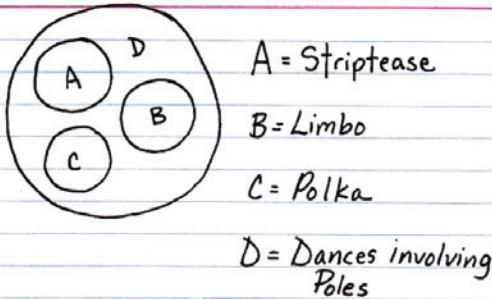 D
A
B
C
A = Striptease
B = Limbo
C = Polka
D = Dances involving
Poles